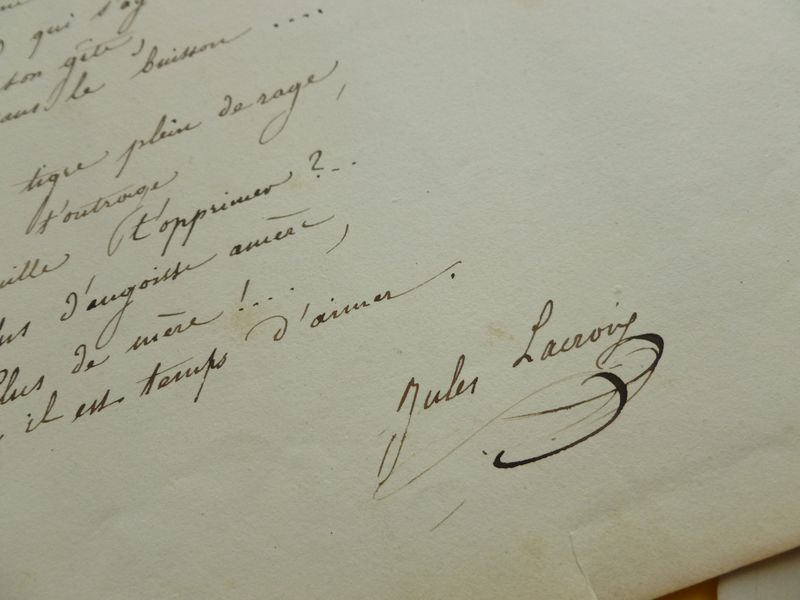 qui s'ag
son gîte,
dans le buisson ....
tigre plein de rage,
t'outrage
t'opprimer ?...
d'angoisse amère,
Plus de mère !....
il est temps d'aimer.
Jules Lacroix